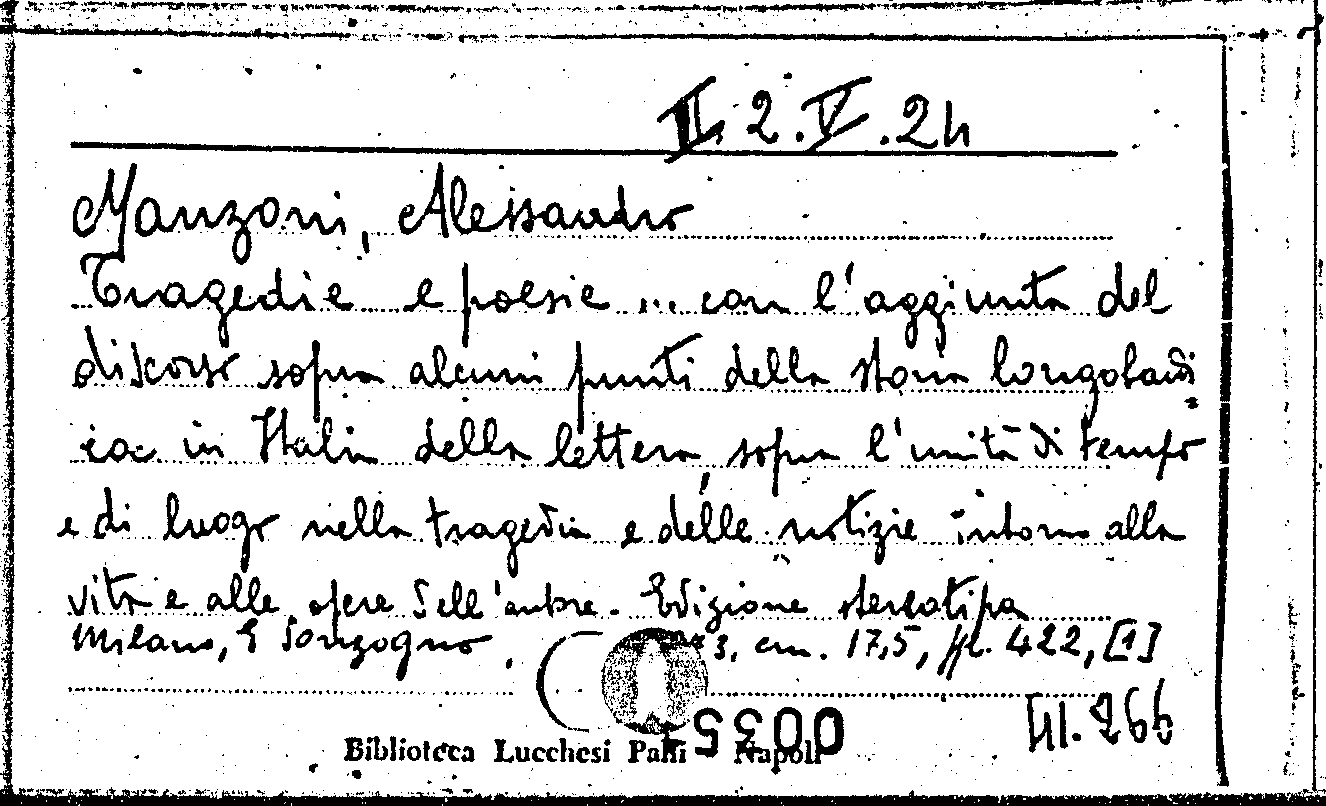 II. 2. V. 24
Manzoni, Alessandro
Tragedie e poesie ... con l'aggiunta del
discorso sopra alcuni punti della storia longobardi=
ca in Italia della lettera sopra l'unità di tempo
e di luogo nella tragedia e delle notizie intorno alla
vita e alle opere dell'autore. Edizione stereotipa
Milano, E Sonzogno, 3, cm. 17,5, pp. 422, [1]
Biblioteca Lucchesi Palli Napoli
0035
41.266